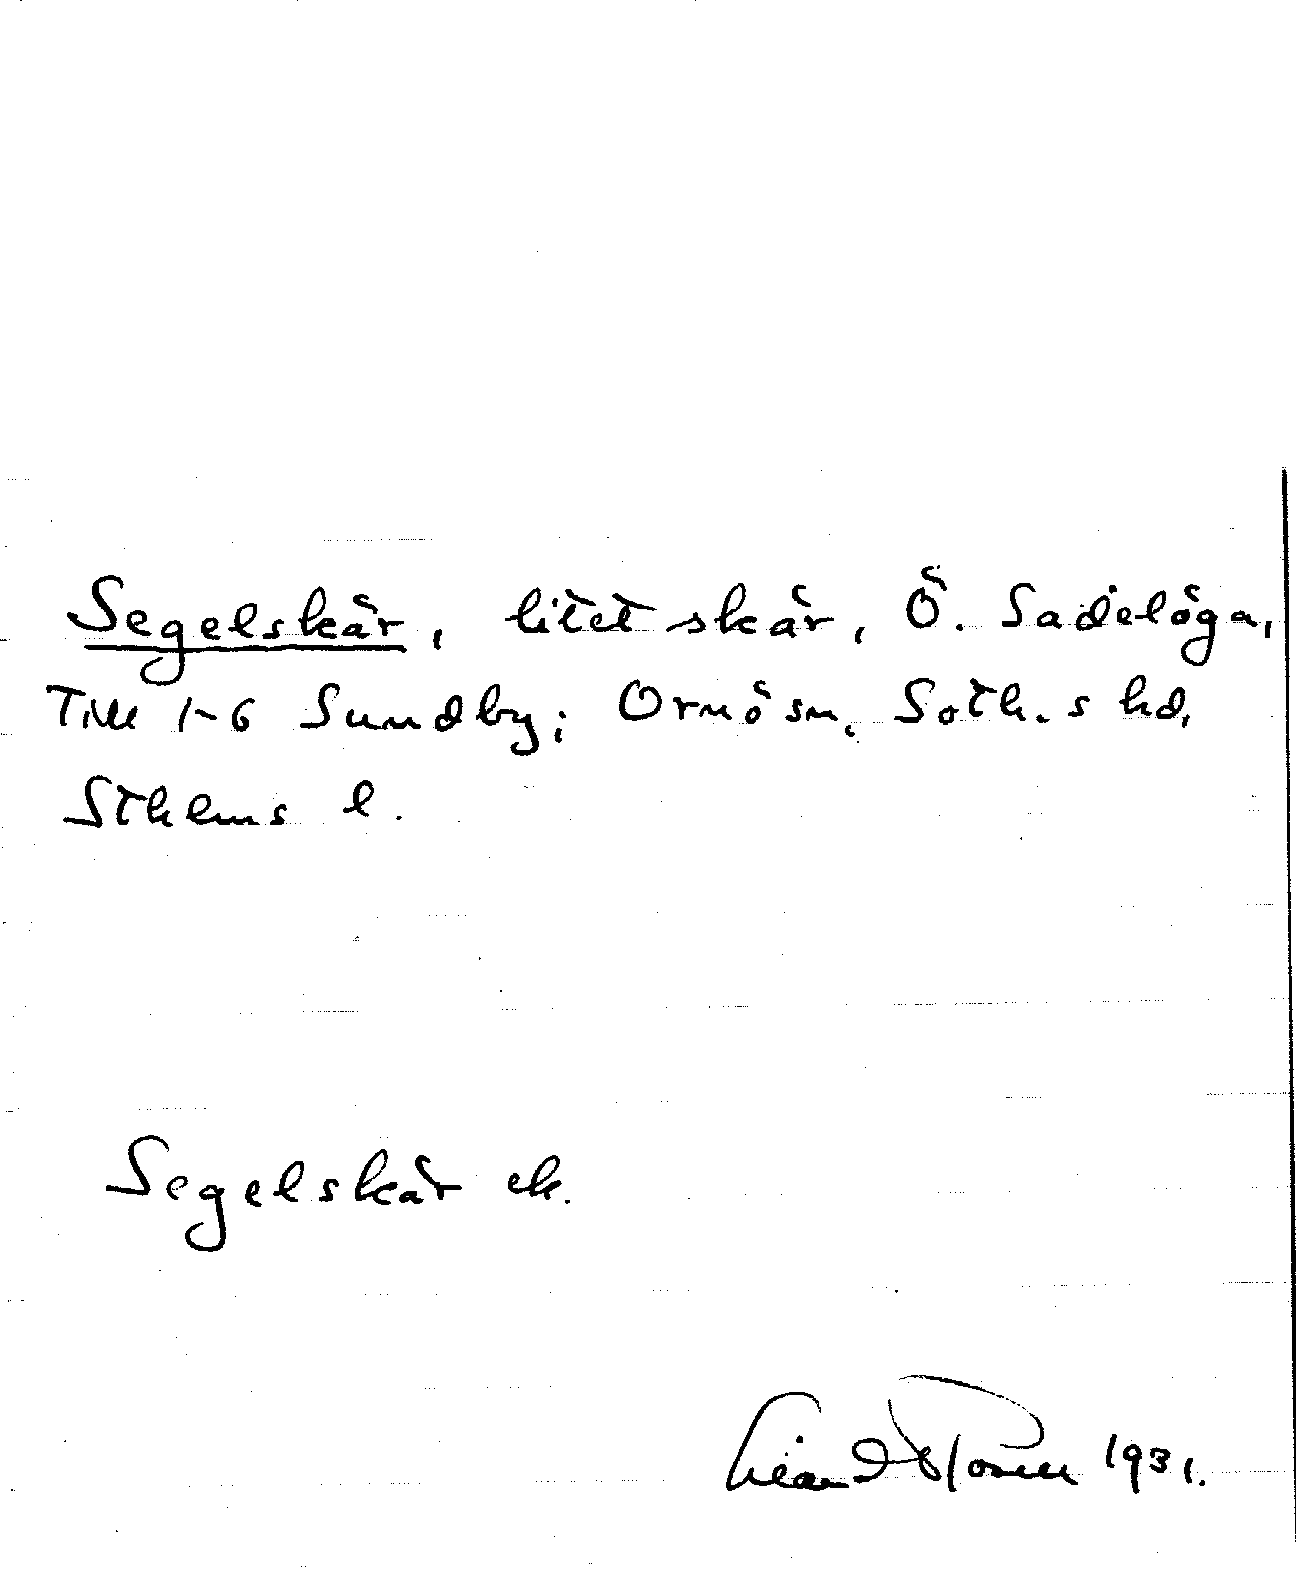 Segelskär, litet skär, Ö. Sadelöga,
Till 1-6 Sundby; Ornö sn, Soth.s hd,
Sthlms l.
Segelskär ek.
1931.